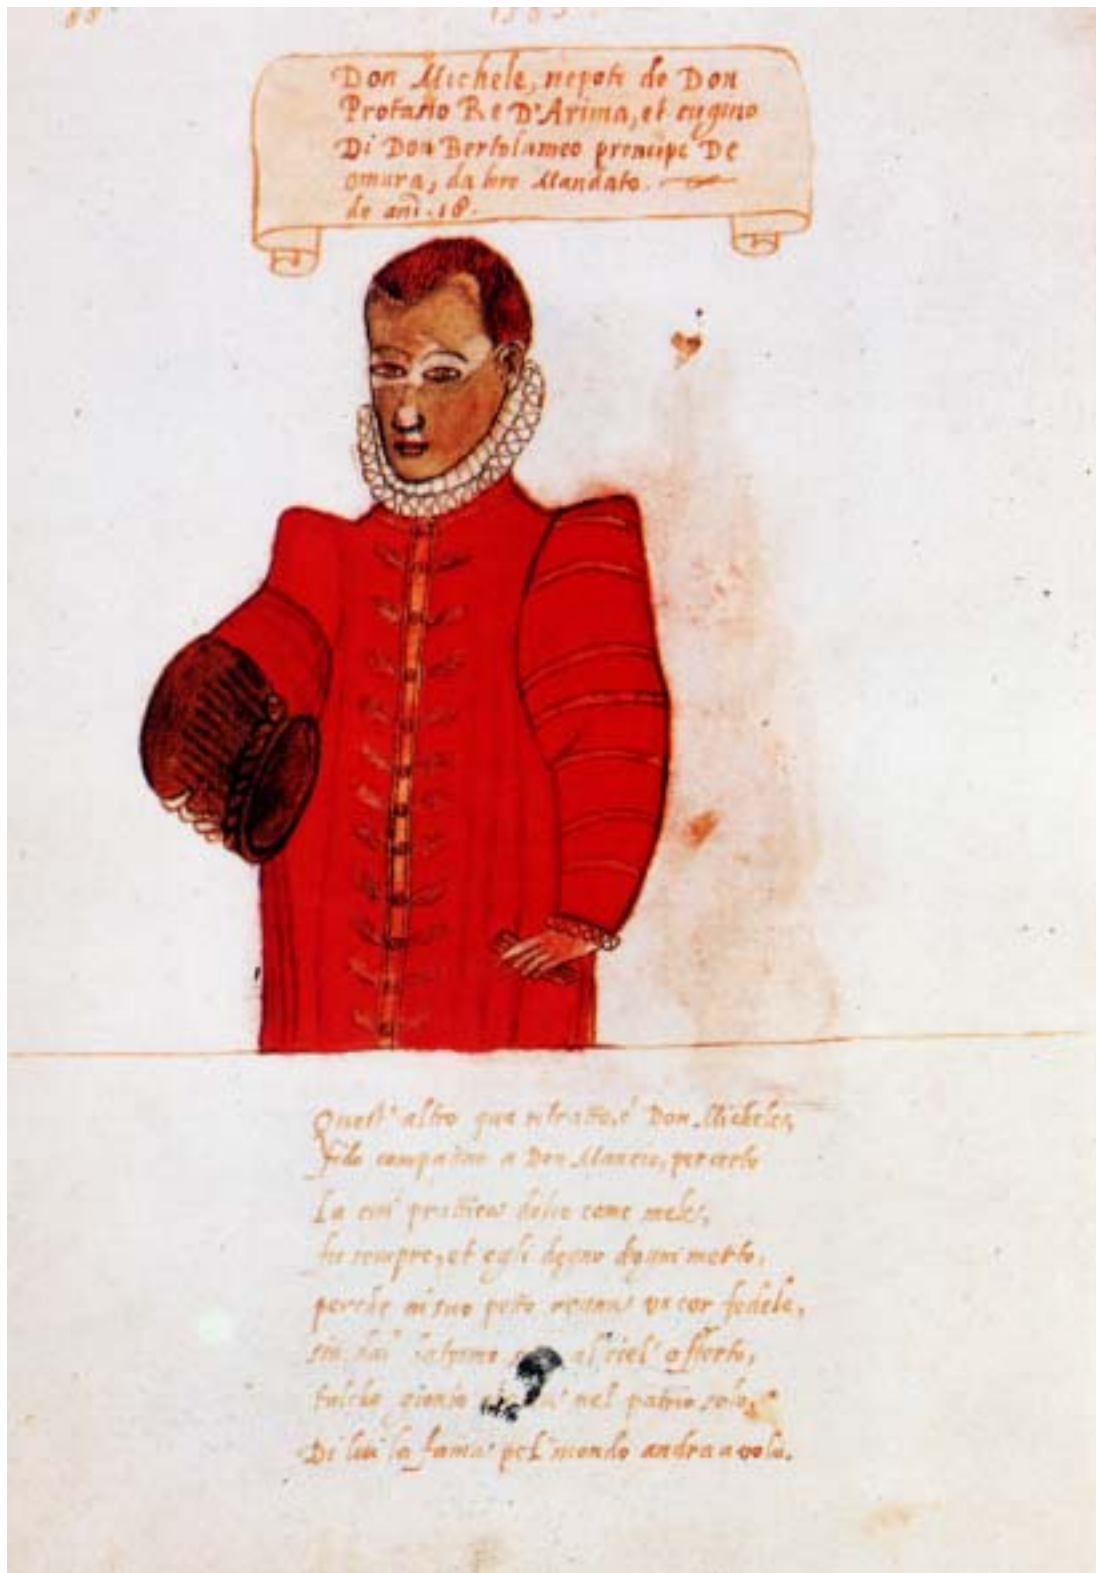 1585
Don Michele, nepote de Don
Protasio Re D'Arima, et cugino
Di Don Bertolameo prencipe De
omura, da loro Mandato.
de anni .18.
Quest' altro qua ritratto, è Don Michele,
fido compagno a Don Mancio, per certo
La cui prattica dolce come mele,
fu sempre, et egli degno d'ogni merto,
perche nel suo petto un cor fedele,
al ciel' offerto,
nel patrio solo,
Di lui la fama pel mondo andra a volo.